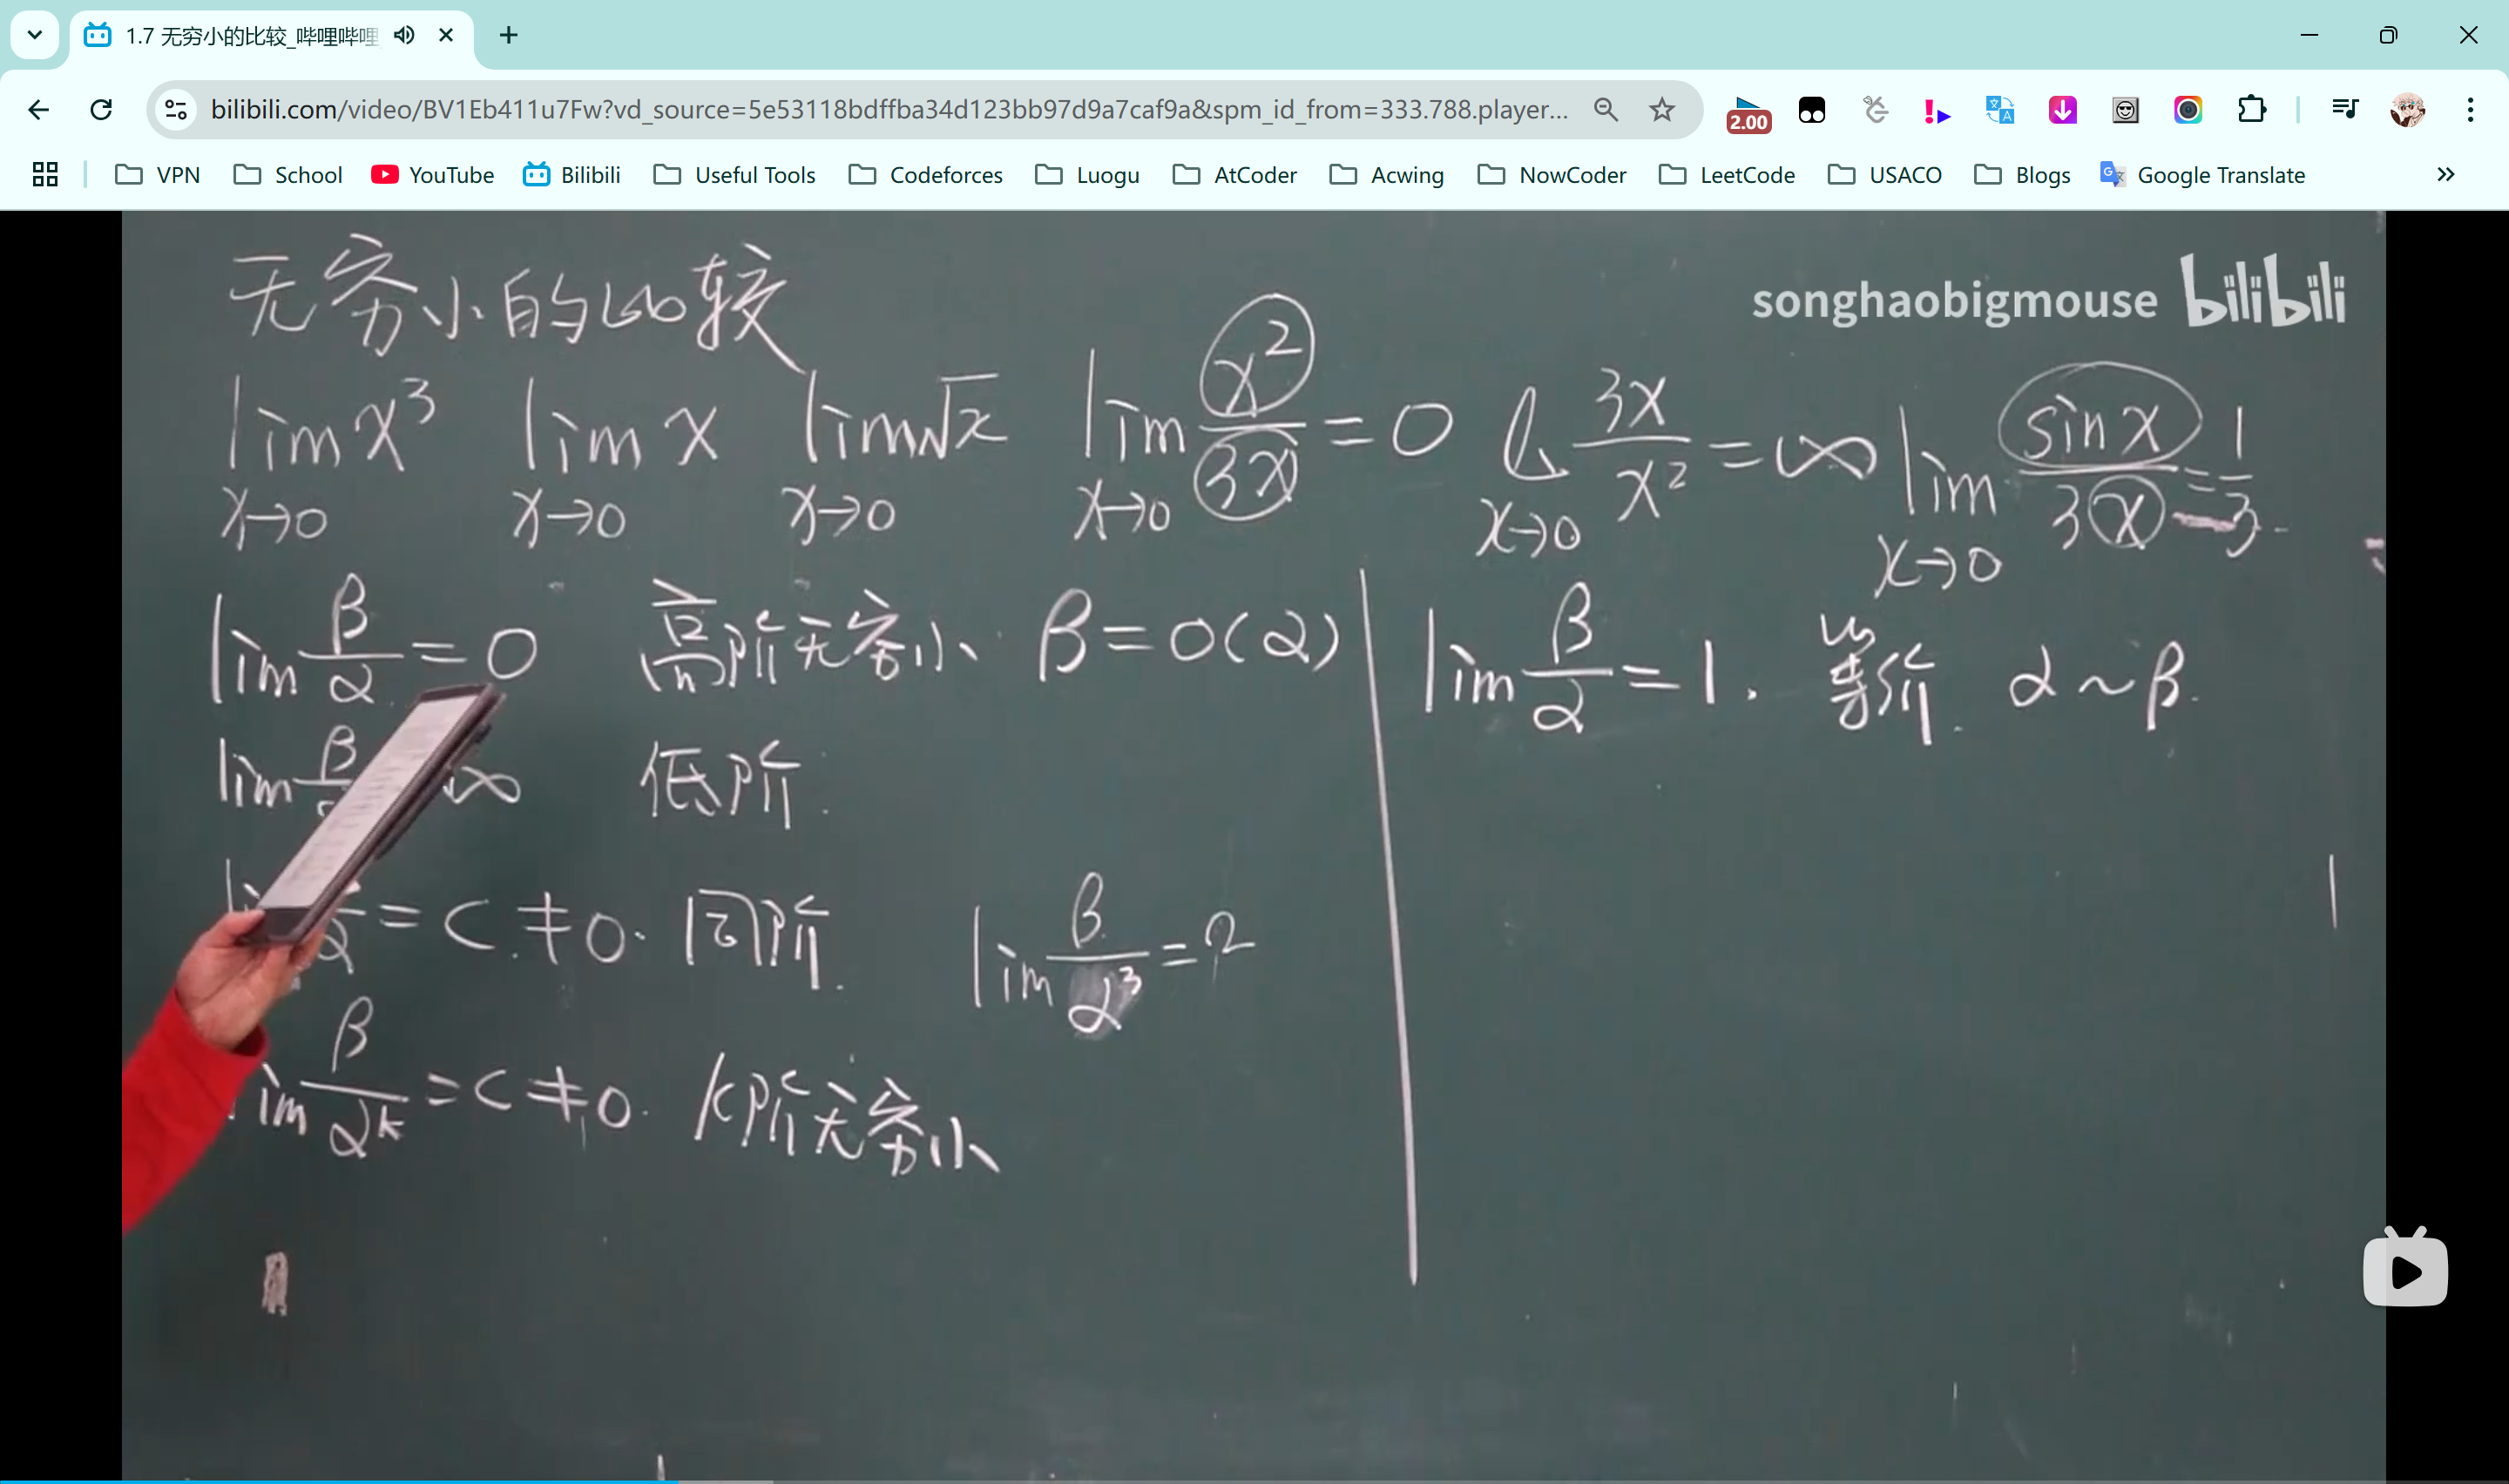 1.7 无穷小的比较_哔哩哔哩
bilibili.com/video/BV1Eb411u7Fw?vd_source=5e53118bdffba34d123bb97d9a7caf9a&spm_id_from=333.788.player...
2.00
VPN School YouTube Bilibili Useful Tools Codeforces Luogu AtCoder Acwing NowCoder LeetCode USACO Blogs Google Translate
songhaobigmouse bilibili
无穷小的比较
lim x³ lim x lim √x lim x²/3x = 0 lim 3x/x² = ∞ lim sin x/3x = 1/3
x→0 x→0 x→0 x→0 x→0 x→0
lim β/α = 0 高阶无穷小 β = o(α)
lim β ∞ 低阶
α = C ≠ 0. 同阶. lim β/α³ = 2
lim β/α^k = C ≠ 0. k阶无穷小
lim β/α = 1. 等价. α ~ β.